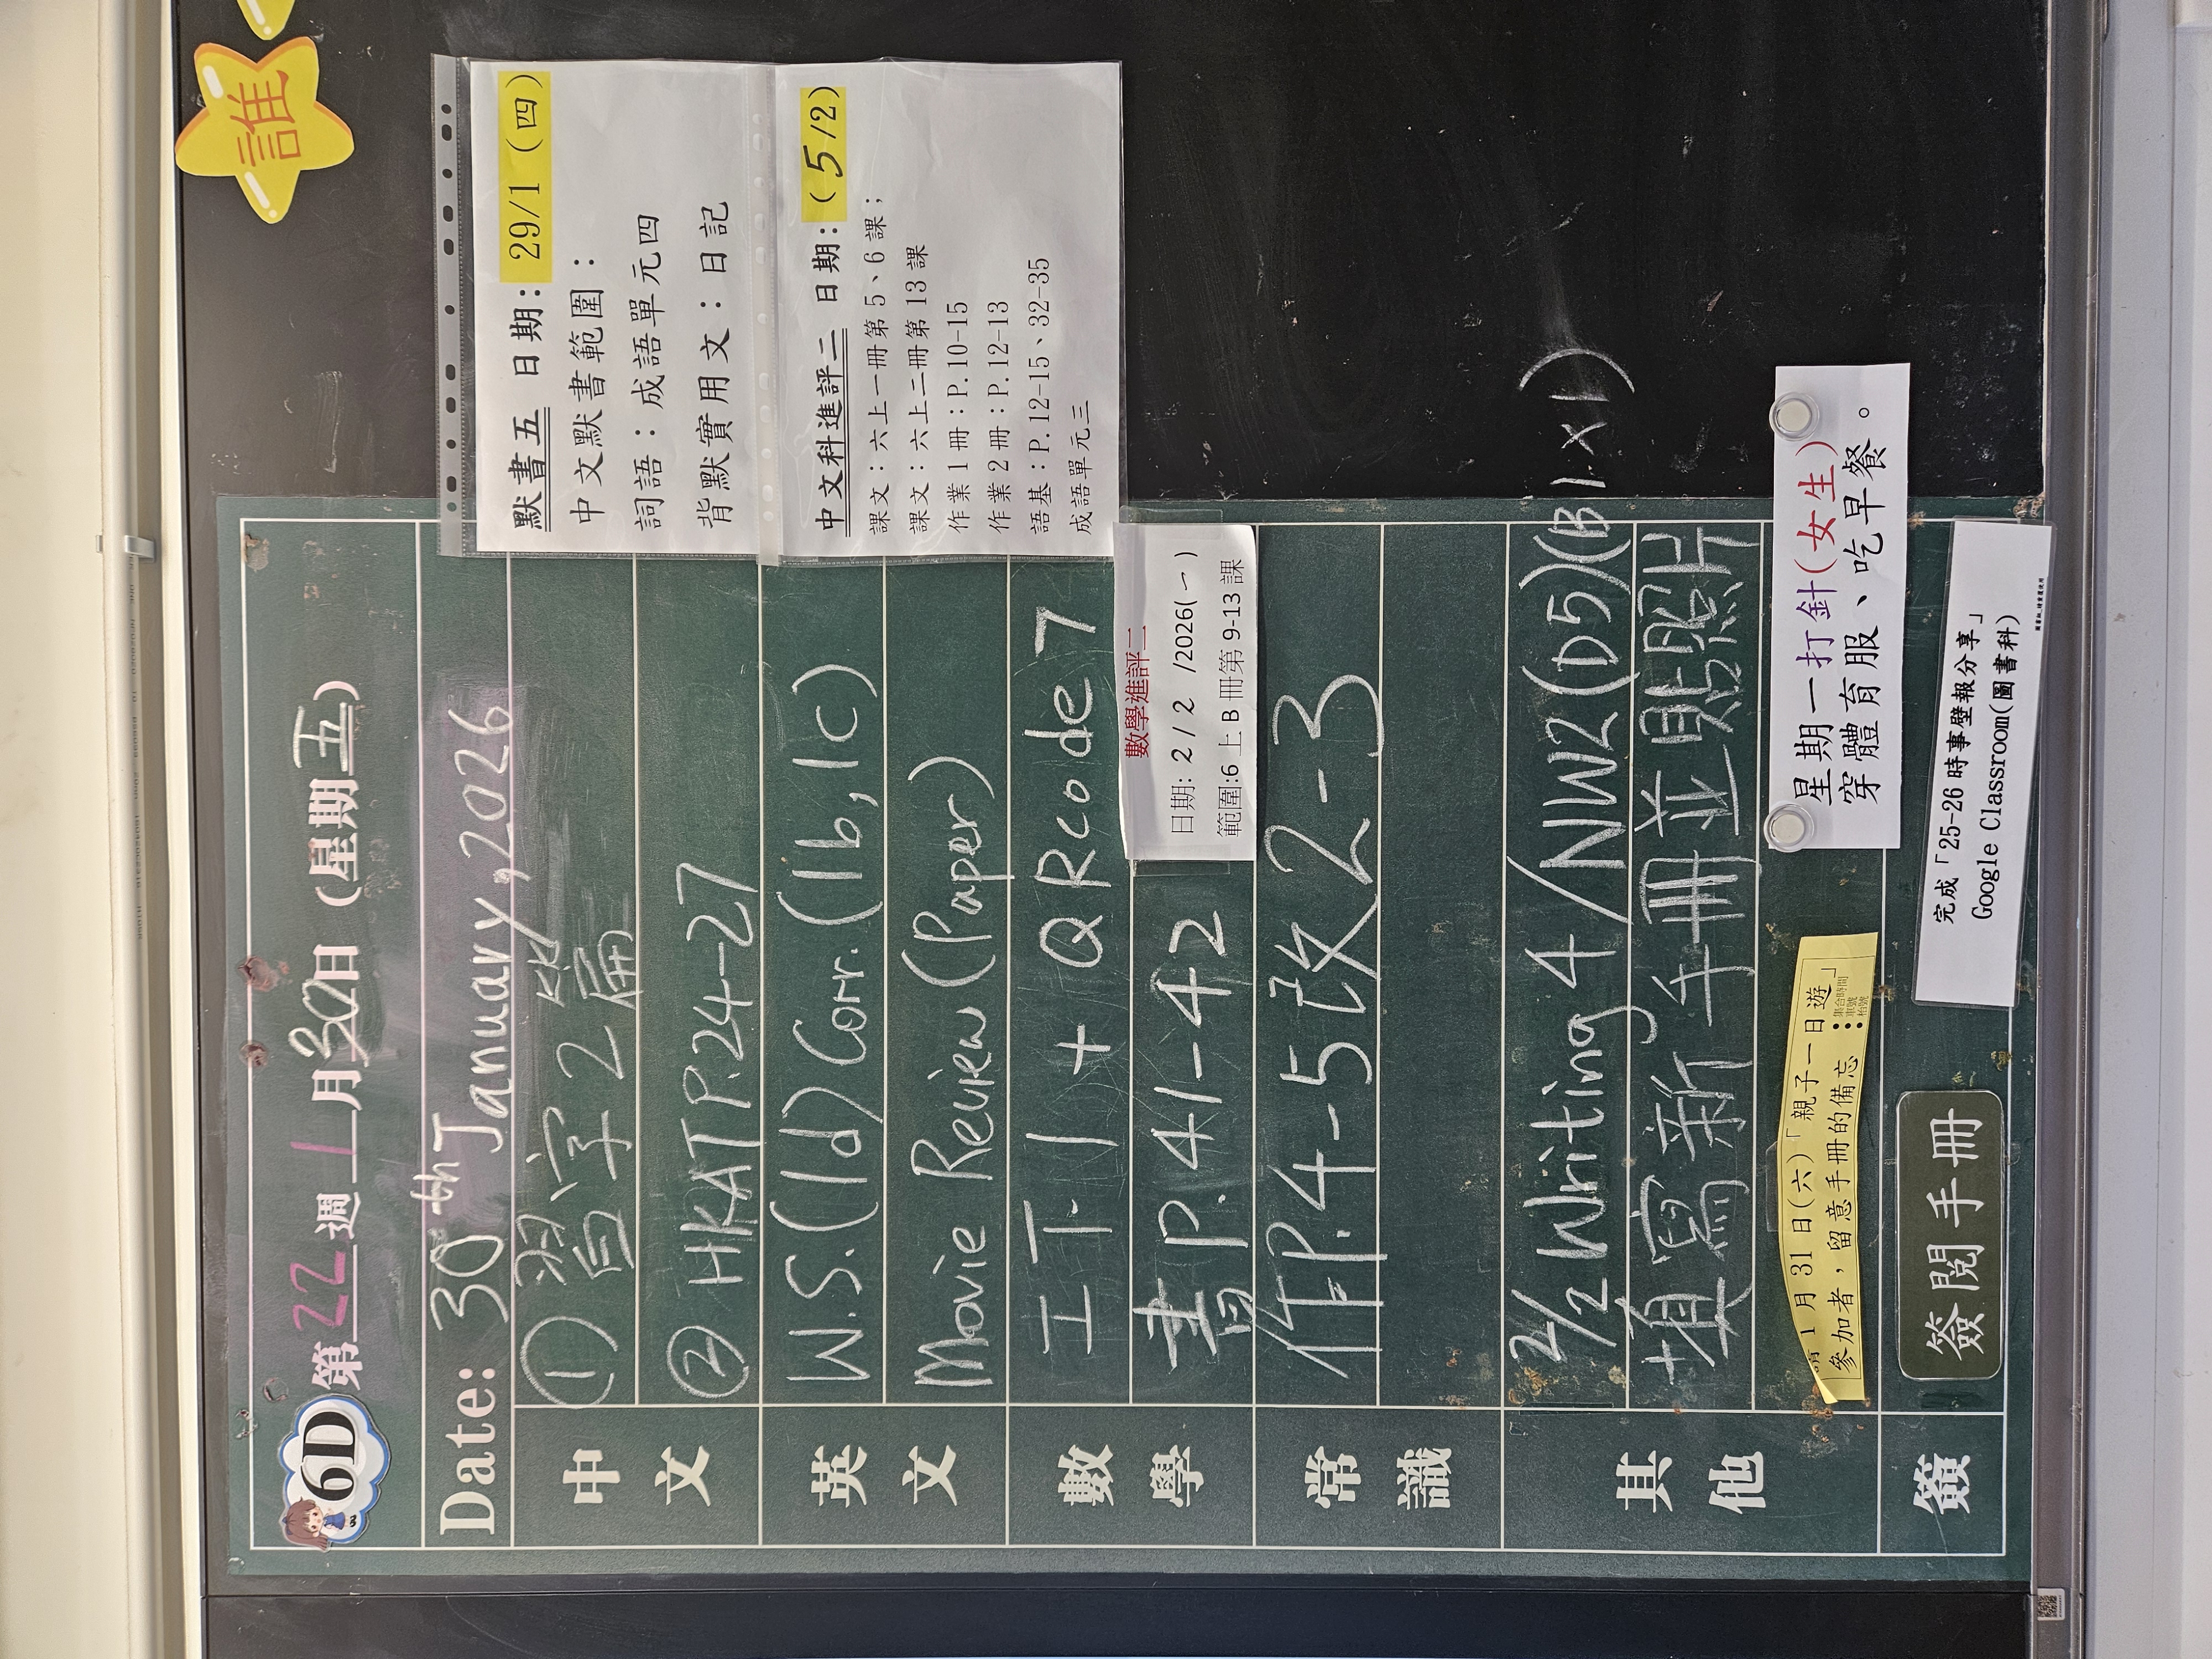 誰
6D 第22週 1月30日 (星期五)
Date: 30th January, 2026
中文
① 習字2篇
② HKAT P.24-27
英文
W.S.(1d) Corr.(1b,1c)
Movie Review (Paper)
數學
工下1 + QRcode 7
書P.41-42
常識
作P.4-5改2-3
其他
2/2 Writing 4 /NW2(D5)(B1×1)
填寫新手冊並貼照片
請1月31日(六)「親子一日遊」
參加者，留意手冊的備忘：
集合時間
車號
枱號
星期一打針(女生)
穿體育服、吃早餐。
簽
簽閱手冊
完成「25-26時事壁報分享」
Google Classroom(圖書科)
默書五 日期: 29/1 (四)
中文默書範圍：
詞語：成語單元四
背默實用文：日記
中文科進評二 日期:(5/2)
課文：六上一冊第5、6課；
課文：六上二冊第13課
作業1冊：P.10-15
作業2冊：P.12-13
語基：P.12-15、32-35
成語單元三
數學進評二
日期: 2 / 2 /2026(一)
範圍:6上B冊第9-13課